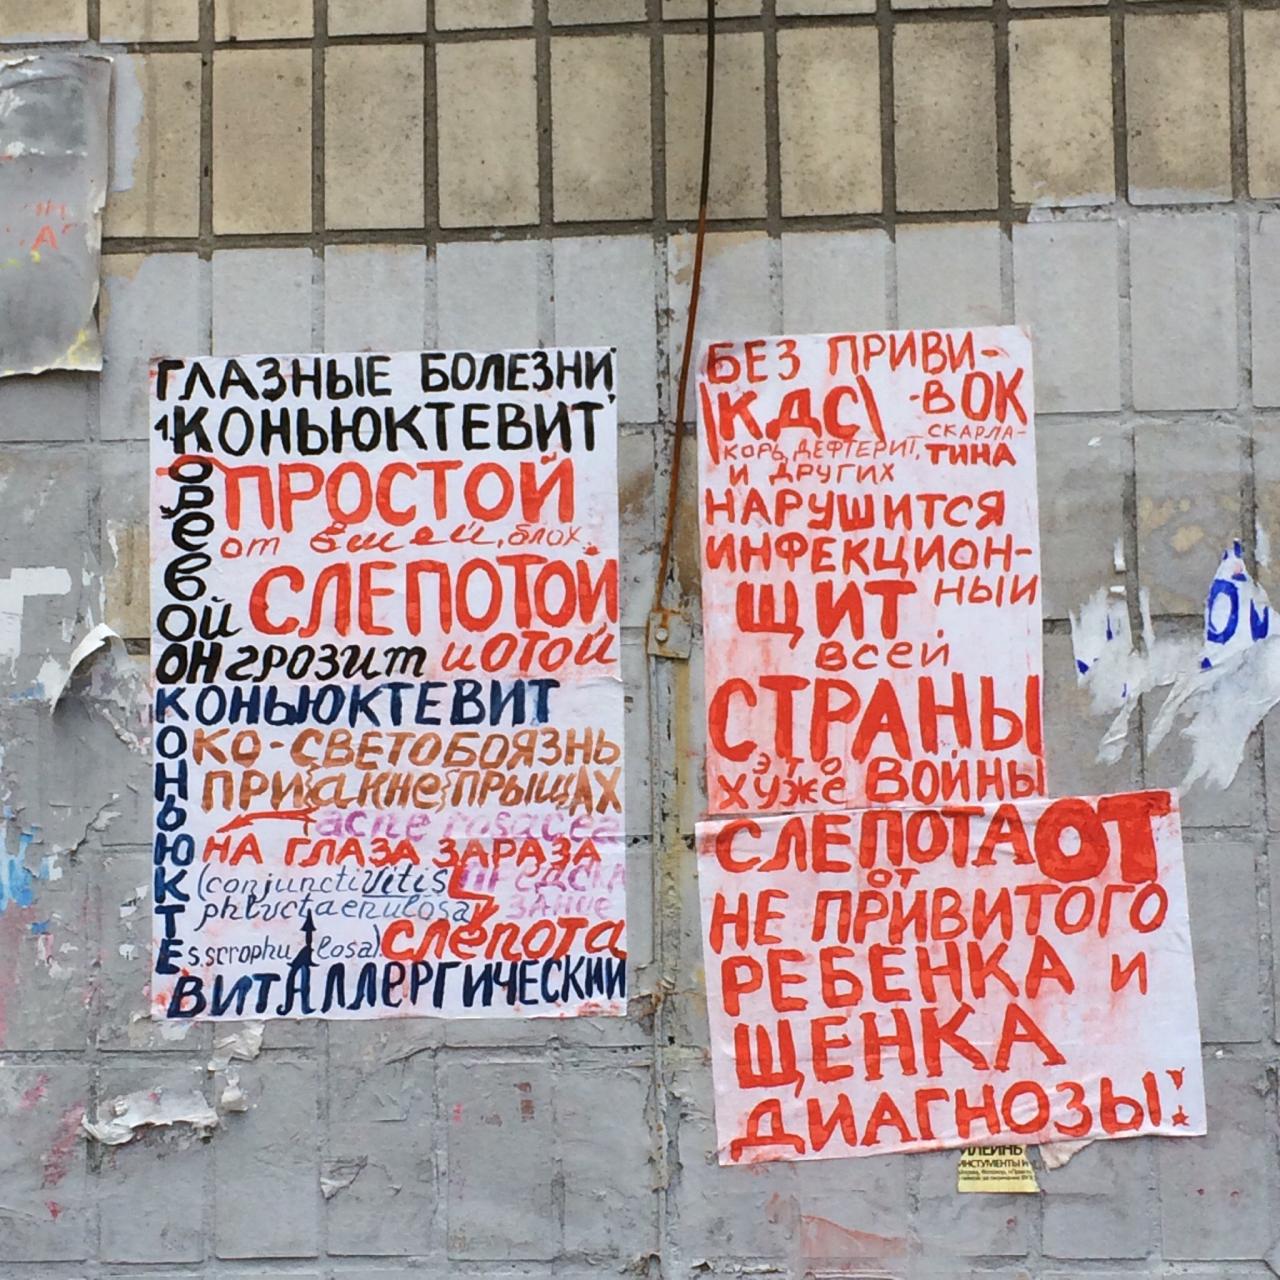 ГЛАЗНЫЕ БОЛЕЗНИ
1. КОНЬЮКТЕВИТ
КОРЕВОЙ
ПРОСТОЙ
от вшей, блох.
СЛЕПОТОЙ
ОН грозит и ОТОЙ
КОНЬЮКТЕВИТ
КОНЬЮКТЕ
КО-СВЕТОБОЯЗНЬ
ПРИ {акне} ПРЫЩАХ
acne rosacea
НА ГЛАЗА ЗАРАЗА
(conjunctivitis
ПРЕДСКА
phlyctaenulosa
ЗАНИЕ
s. scrophulosa).
Слепота
ВИТ АЛЛЕРГИЧЕСКИЙ
БЕЗ ПРИВИ-
\КДС\ -ВОК
КОРЬ, ДЕФТЕРИТ, СКАРЛА-
И ДРУГИХ ТИНА
НАРУШИТСЯ
ИНФЕКЦИОН-
ЩИТ НЫЙ
всей
СТРАНЫ
это
хуже ВОЙНЫ
СЛЕПОТА ОТ
ОТ
НЕ ПРИВИТОГО
РЕБЕНКА и
ЩЕНКА
ДИАГНОЗЫ:
ИНСТУМЕНТЫ И